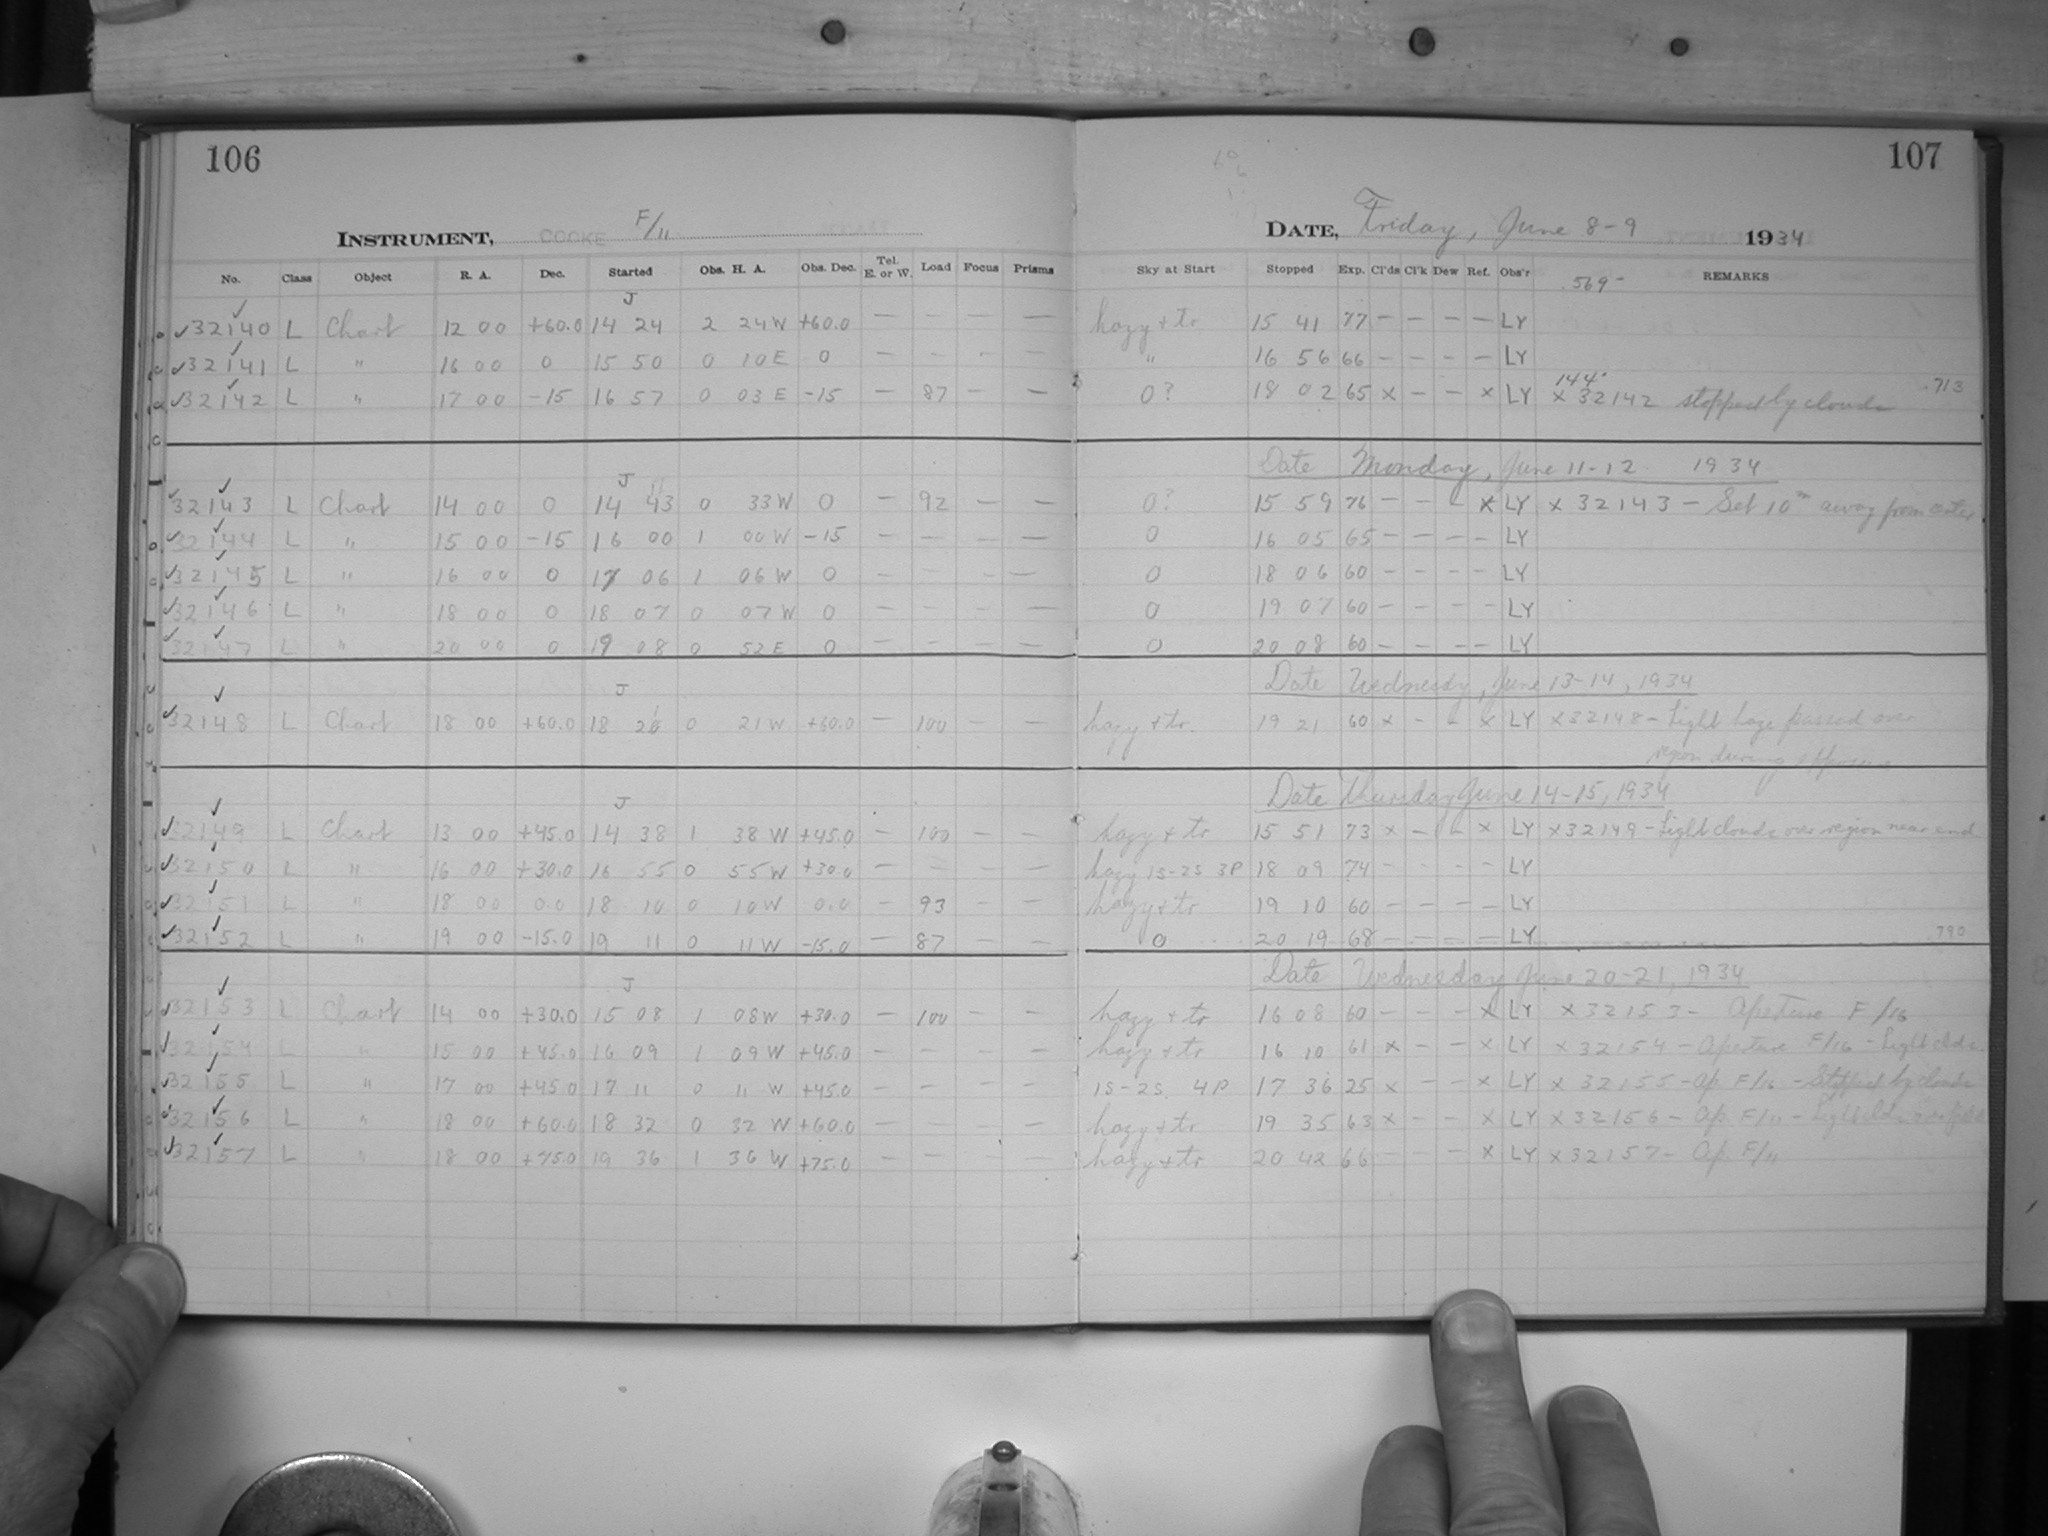 106
107
INSTRUMENT, COOKE F/11
DATE, Friday, June 8-9 1934
No. Class Object R. A. Dec. Started Obs. H. A. Obs. Dec. Tel. E. or W. Load Focus Prisms Sky at Start Stopped Exp. Cl'ds Cl'k Dew Ref. Obs'r .569- REMARKS
J
✓32140 L Chart 12 00 +60.0 14 24 2 24W +60.0 — — — — hazy + tr 15 41 77 — — — — LY
✓32141 L " 16 00 0 15 50 0 10E 0 — — - — " 16 56 66 — — — — LY
144
✓32142 L " 17 00 -15 16 57 0 03 E -15 — 87 — — 0? 18 02 65 x — — x LY x 32142 stopped by clouds .713
Date Monday, June 11-12 1934
J
✓32143 L Chart 14 00 0 14 43 0 33W 0 — 92 — — 0? 15 59 76 — — — x LY x 32143 — Set 10m away from center
✓32144 L " 15 00 -15 16 00 1 00 W -15 — — — — 0 16 05 65 — — — — LY
✓32145 L " 16 00 0 17 06 1 06 W 0 — — — — 0 18 06 60 — — — — LY
✓32146 L " 18 00 0 18 07 0 07W 0 — — — — 0 19 07 60 — — — — LY
✓32147 L " 20 00 0 19 08 0 52 E 0 — — — — 0 20 08 60 — — — — LY
Date Wednesday, June 13-14, 1934
J
✓32148 L Chart 18 00 +60.0 18 20 0 21W +60.0 — 100 — — hazy + tr. 19 21 60 x — — x LY x32148 — Light haze passed over
region during exposure
Date Thursday June 14-15, 1934
J
✓32149 L Chart 13 00 +45.0 14 38 1 38 W +45.0 — 100 — — hazy + tr 15 51 73 x — — x LY x32149 - Light clouds over region near end
✓32150 L " 16 00 +30.0 16 55 0 55W +30.0 — — — — hazy 1S-2S 3P 18 09 74 — — — — LY
✓32151 L " 18 00 0.0 18 10 0 10W 0.0 — 93 — — hazy + tr 19 10 60 — — — — LY
✓32152 L " 19 00 -15.0 19 11 0 11W -15.0 — 87 — — 0 20 19 68 — — — — LY 790
Date Wednesday June 20-21, 1934
J
✓32153 L Chart 14 00 +30.0 15 08 1 08W +30.0 — 100 — — hazy + tr 16 08 60 — — — x LY x 32153 - Aperture F/16
✓32154 L " 15 00 +45.0 16 09 1 09 W +45.0 — — — — hazy + tr 16 10 61 x — — x LY x 32154 - Aperture F/16 - Light clds.
✓32155 L " 17 00 +45.0 17 11 0 11 W +45.0 — — — — 1S-2S 4P 17 36 25 x — — x LY x 32155 - Ap. F/16 - Stopped by clouds
✓32156 L " 18 00 +60.0 18 32 0 32 W +60.0 — — — — hazy + tr 19 35 63 x — — x LY x 32156 - Ap. F/11 - Light clds over field
✓32157 L " 18 00 +75.0 19 36 1 36 W +75.0 — — — — hazy + tr 20 42 66 — — — x LY x 32157 - Ap. F/11